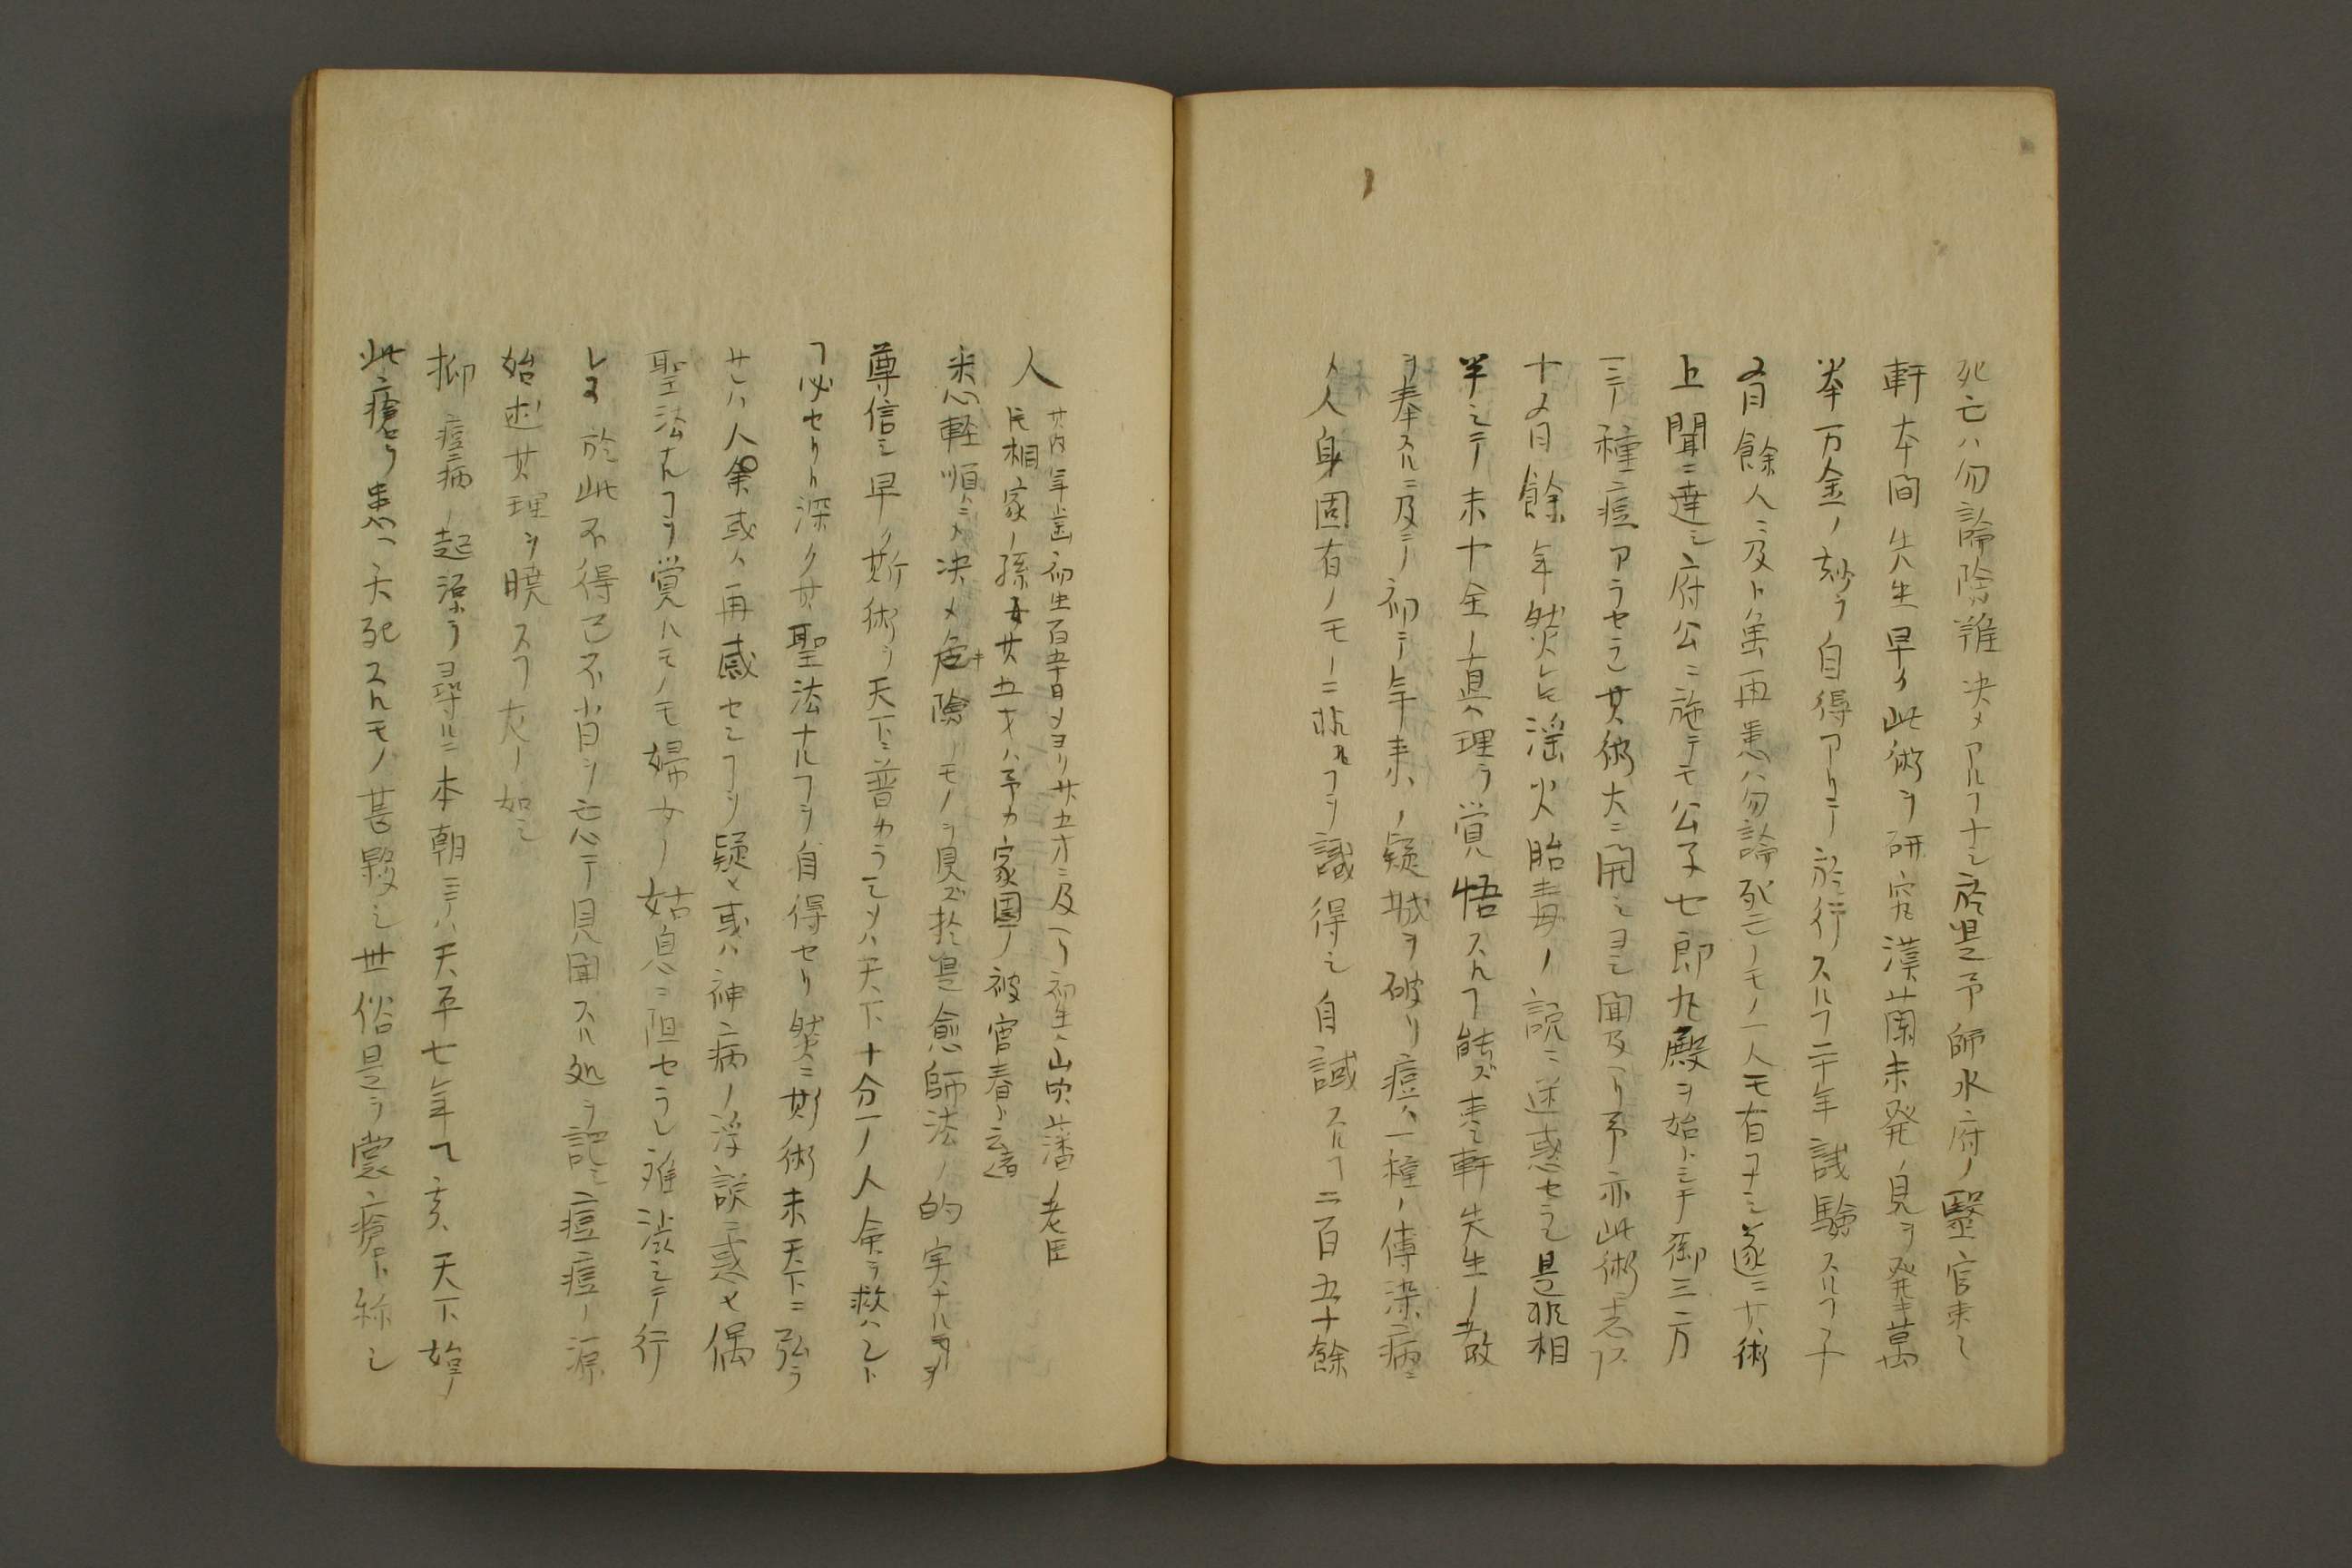 死亡ハ勿論險難決メアルヿナシ於是予師水府ノ醫官枣
軒本間先生早ク此術ヲ研究漢蘭未発ノ見ヲ発キ萬
拳万金ノ劾ヲ自得アリテ於行スルヿ二十年試驗スルヿ千
有餘人ニ及ト雖再患ハ勿論死亡ノモノ一人モ有ヿナシ遂ニ其術
上聞ニ達シ府公ニ施テモ公子七郎丸殿ヲ始トシテ御三方
ニテ種痘アラセラレ其術大ニ開シヨシ聞及ヘリ予亦此術ニ志ス
十有餘年然㠯淫火胎毒ノ説ニ迷惑セラレ是非相
半シテ未十全ノ真理ヲ覚悟スルヿ能ズ枣軒先生ノ教
ヲ奉スルニ及テ初テ年来ノ疑城ヲ破リ痘ハ一種ノ傳染病ニ
メ人身固有ノモノニ非ルヿヲ識得シ自試スルヿ二百五十餘
人 其内年歯初生百五十日メヨリ廿五才ニ及ヘリ初生ハ山吹藩ノ老臣
片相家ノ孫女廿五才ハ予カ家園ノ被官春ト云者
悉軽順ニメ決メ危キ險ノモノヲ見ズ於是愈師法ノ的実ナルヿヲ
尊信シ早ク斯術ヲ天下ニ普カラシメハ天下十分一ノ人命ヲ救ハント
ヿ必セリト深ク其聖法ナルヿヲ自得セリ然ニ斯術未天下ニ弘ラ
サレハ人命或ハ再感センヿヲ疑ヒ或ハ神病ノ浮説ニ惑ヒ偶
聖法ナルヿヲ覚ルモノモ婦女ノ姑息ニ阻セラレ難渋シテ行
レヌ於此不得已不肖ヲ忘テ見聞スル処ヲ記シ痘瘡ノ源
始述其理ヲ曉スヿ左ノ如シ
抑痘病ノ起源ヲ尋ルニ本朝ニテハ天平七年乙亥天下始テ
此瘡ヲ患ヘ夭死スルモノ甚夥シ世俗是ヲ裳瘡ト称シ